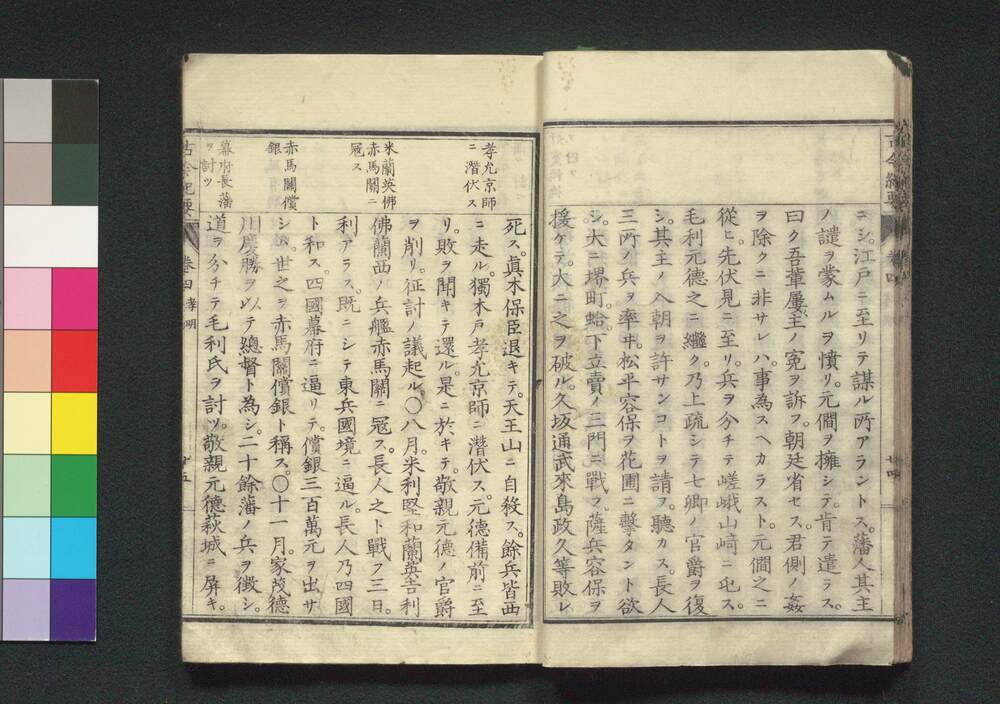 ニシ。江戸ニ至リテ謀ル所アラントス。藩人其主
ノ譴ヲ蒙ムルヲ憤リ。元僴ヲ擁シテ。肯テ遣ラス。
曰ク吾輩屢主ノ冤ヲ訴フ。朝廷省セス。君側ノ姦
ヲ除クニ非サレハ。事為スヘカラスト。元僴之ニ
從ヒ。先伏見ニ至リ。兵ヲ分チテ嵯峨山﨑ニ屯ス。
毛利元德之ニ繼ク。乃上疏シテ七卿ノ官爵ヲ復
シ。其主ノ入朝ヲ許サンコトヲ請フ。聽カス。長人
三所ノ兵ヲ率ヰ。松平容保ヲ花圃ニ擊タント欲
シ。大ニ堺町。蛤。下立賣ノ三門ニ戰フ。薩兵容保ヲ
援ケテ。大ニ之ヲ破ル。久坂通武來島政久等敗レ
古今紀要
卷四
廿四
死ス。眞木保臣退キテ。天王山ニ自殺ス。餘兵皆西
ニ走ル。獨木戸孝允京師ニ潛伏ス。元德備前ニ至
リ。敗ヲ聞キテ還ル。是ニ於キテ。敬親元德ノ官爵
ヲ削リ。征討ノ議起ル〇八月。米利堅和蘭英吉利
佛蘭西ノ兵艦赤馬關ニ冦ス。長人之ト戰フ三日。
利アラス。既ニシテ東兵國境ニ逼ル。長人乃四國
ト和ス。四國幕府ニ逼リテ。償銀三百萬元ヲ出サ
シム。世之ヲ赤馬關償銀ト稱ス。〇十一月。家茂德
川慶勝ヲ以テ總督ト為シ。二十餘藩ノ兵ヲ徵シ。
道ヲ分チテ毛利氏ヲ討ツ。敬親元德萩城ニ屏キ。
孝允京師
ニ潛伏ス
米蘭英佛
赤馬關ニ
冦ス
赤馬關償
銀
幕府長藩
ヲ討ツ
古今紀要
卷四 孝明
廿五